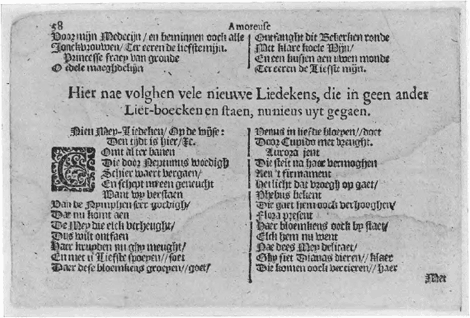 58 Amoreuse
Voor mijn Medecijn / en beminnen oock alle
Jonckvrouwen / Ter eeren de liefste mijn.
Princesse fraey van gronde
O edele maeghdelijn
Ontfanght dit Bekerken ronde
Met klare koele Wijn /
En een kusjen aen uwen monde
Ter eeren de Liefste mijn.
Hier nae volghen vele nieuwe Liedekens, die in geen ander
Liet-boecken en staen, nu nieus uyt gegaen.
Een Mey-Liedeken / Op de wijse:
Den tijdt is hier / &c.
Comt al ter banen
Die door Neptunus
Schier waert vergaen /
En schept weer geneucht
Want wy verstaen
Van de Nymphen seer
Dat nu komt aen
De Mey die elck verheught /
Dus wilt ontfaen
Haer kruyden nu ghy meught /
En met u Liefste / soet
Daer dese bloemkens groeyen / goet /
Venus in liefde bloeyen // doet
Door Cupido met vreught.
Aurora jent
Die stelt na haer vermoghen
Aen 't firmament
Het licht dat vroegh op gaet /
Phebus bekent
Die gaet hem oock verhooghen
Flora present
Haer bloemkens oock by staet /
Elck hem nu went
Nae dees Mey delicaet /
Ghy siet Dianas dieren // klaer
Die komen oock vercieren // haer
Met